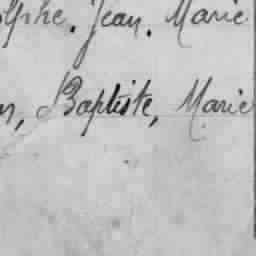 olphe. Jean. Marie
n, Baptiste, Marie